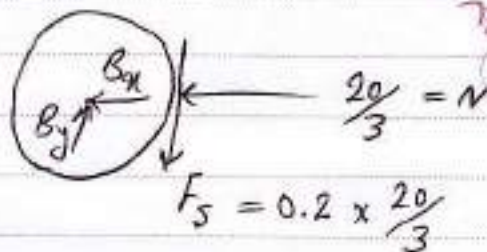 Bx
By
20/3 = N
Fs = 0.2 x 20/3